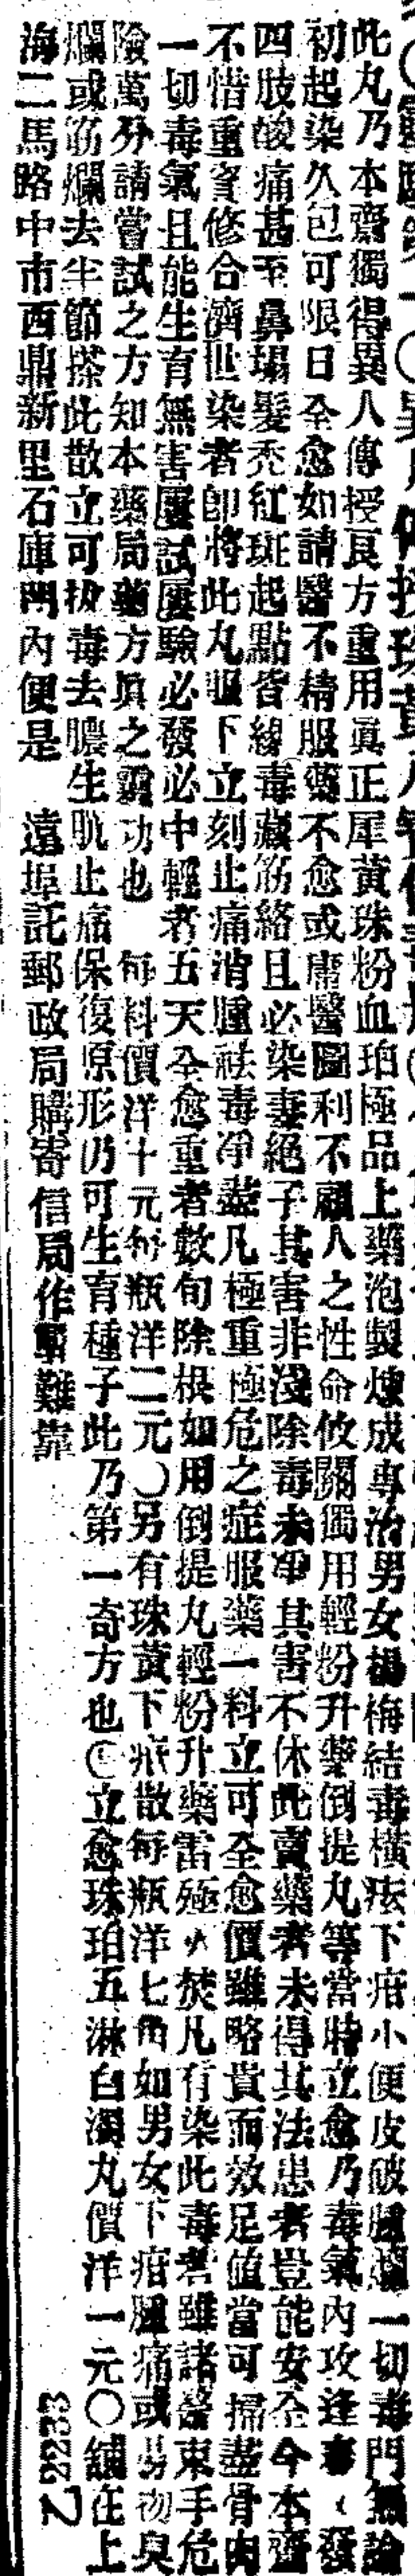 此丸乃本齋獨得異人傳授良方重用眞正犀黃珠粉血珀極品上藥泡製煉成專治男女楊梅結毒橫痃下疳小便皮破腫爛一切毒門無論
初起染久包可限日全愈如請醫不精服藥不愈或庸醫圖利不顧人之性命攸關獨用輕粉升藥倒提丸等當時立愈乃毒氣內攻逢春發
四肢酸痛甚至鼻塌髮禿紅斑起點皆緣毒藏筋絡且必染妻絕子其害非淺除毒未凈其害不休此賣藥者未得其法患者豈能安全今本齋
不惜重資修合濟世染者卽將此丸服下立刻止痛消腫祛毒凈盡凡極重極危之症服藥一料立可全愈價雖略貴而效足值當可掃盡骨肉
一切毒氣且能生育無害屢試屢驗必發必中輕者五天全愈重者數旬除根如用倒提丸輕粉升藥雷殛火焚凡有染此毒者雖諸醫束手危
險萬分請嘗試之方知本藥局藥方眞之靈功也　每料價洋十元每瓶洋二元〇另有珠黃下疳散每瓶洋七角如男女下疳腫痛或陽物臭
爛或筋爛去半節搽此散立可拔毒去膿生肌止痛保復原形仍可生育種子此乃第一奇方也〇立愈珠珀五淋白濁丸價洋一元〇舖在上
海二馬路中市西鼎新里石庫門內便是　遠埠託郵政局購寄信局作事難靠